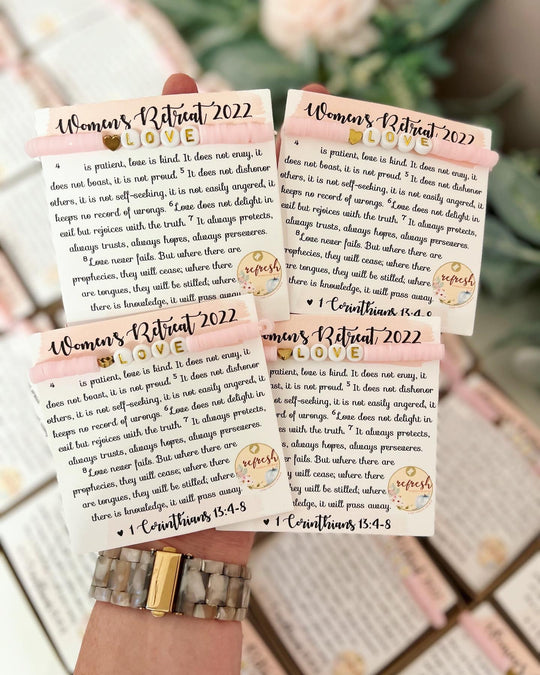 Women's Retreat 2022
LOVE
4 is patient, love is kind. It does not envy, it
does not boast, it is not proud. 5 It does not dishonor
others, it is not self-seeking, it is not easily angered, it
keeps no record of wrongs. 6 Love does not delight in
evil but rejoices with the truth. 7 It always protects,
always trusts, always hopes, always perseveres.
8 Love never fails. But where there are
prophecies, they will cease; where there
are tongues, they will be stilled; where
there is knowledge, it will pass away
refresh
Women's Retreat 2022
LOVE
4 is patient, love is kind. It does not envy, it
does not boast, it is not proud. 5 It does not dishonor
others, it is not self-seeking, it is not easily angered, it
keeps no record of wrongs. 6 Love does not delight in
evil but rejoices with the truth. 7 It always protects,
always trusts, always hopes, always perseveres.
8 Love never fails. But where there are
prophecies, they will cease; where there
are tongues, they will be stilled; where
there is knowledge, it will pass away
refresh
♥ 1 Corinthians 13:4-8
Women's Retreat 2022
LOVE
4 is patient, love is kind. It does not envy, it
does not boast, it is not proud. 5 It does not dishonor
others, it is not self-seeking, it is not easily angered, it
keeps no record of wrongs. 6 Love does not delight in
evil but rejoices with the truth. 7 It always protects,
always trusts, always hopes, always perseveres.
8 Love never fails. But where there are
prophecies, they will cease; where there
are tongues, they will be stilled; where
there is knowledge, it will pass away
refresh
♥ 1 Corinthians 13:4-8
Women's Retreat 2022
LOVE
is patient, love is kind. It does not envy, it
boast, it is not proud. 5 It does not dishonor
it is not self-seeking, it is not easily angered, it
of wrongs. 6 Love does not delight in
rejoices with the truth. 7 It always protects,
trusts, always hopes, always perseveres.
never fails. But where there are
they will cease; where there
they will be stilled; where
knowledge, it will pass away
refresh
♥ 1 Corinthians 13:4-8